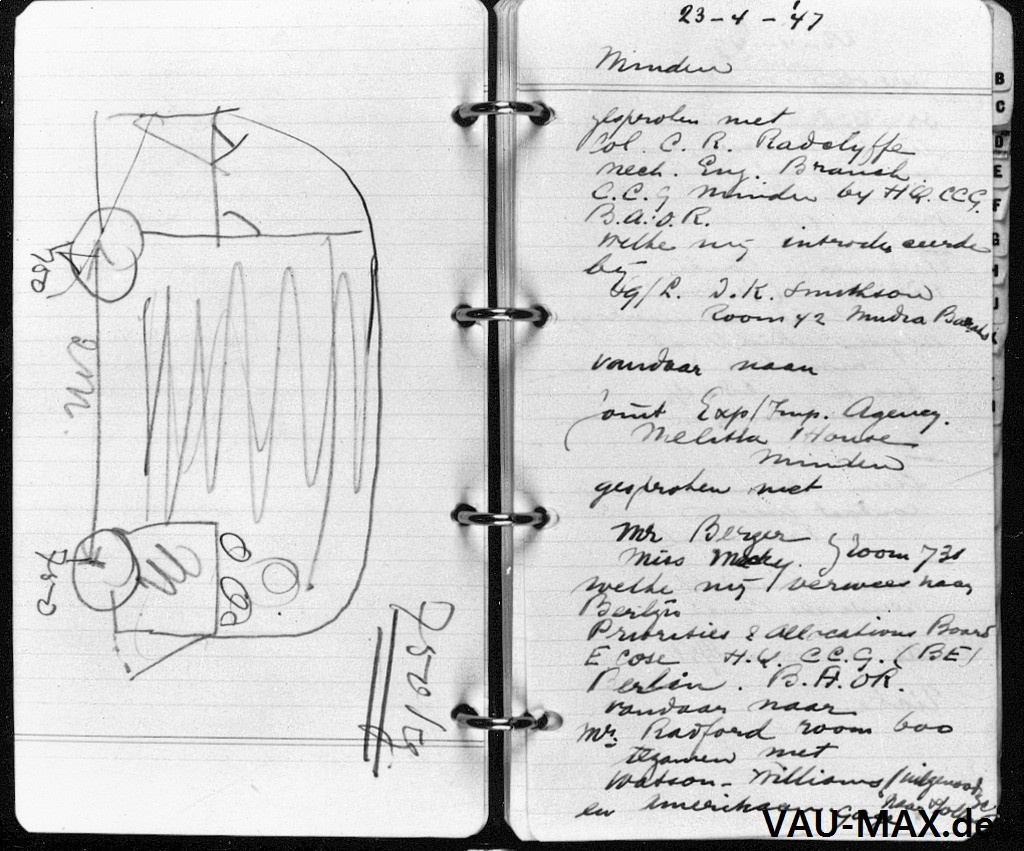 750
2 M.
750
750 kg
23-4-'47
Minden
gesproken met
Col. C. R. Radclyffe
Mech. Eng. Branch
C.C.G Minden by HQ. CCG.
B.A.O.R.
welke mij introduceerde
bij
I.K. Smithson
Room 42 Mudra
vandaar naar
Joint Exp/Imp. Agency.
Melitta House
Minden
gesproken met
Mr Berger
Miss Room 731
welke mij verwees naar
Berlijn
Priorities & Allocations Board
Ecose H.Q. C.C.G. (BE)
Berlin. B.A.OR.
vandaar naar
Mr. Radford room 600
tezamen met
Watson-Williams
en Amerikaan
B
C
D
E
F
G
H
J
K
VAU-MAX.de